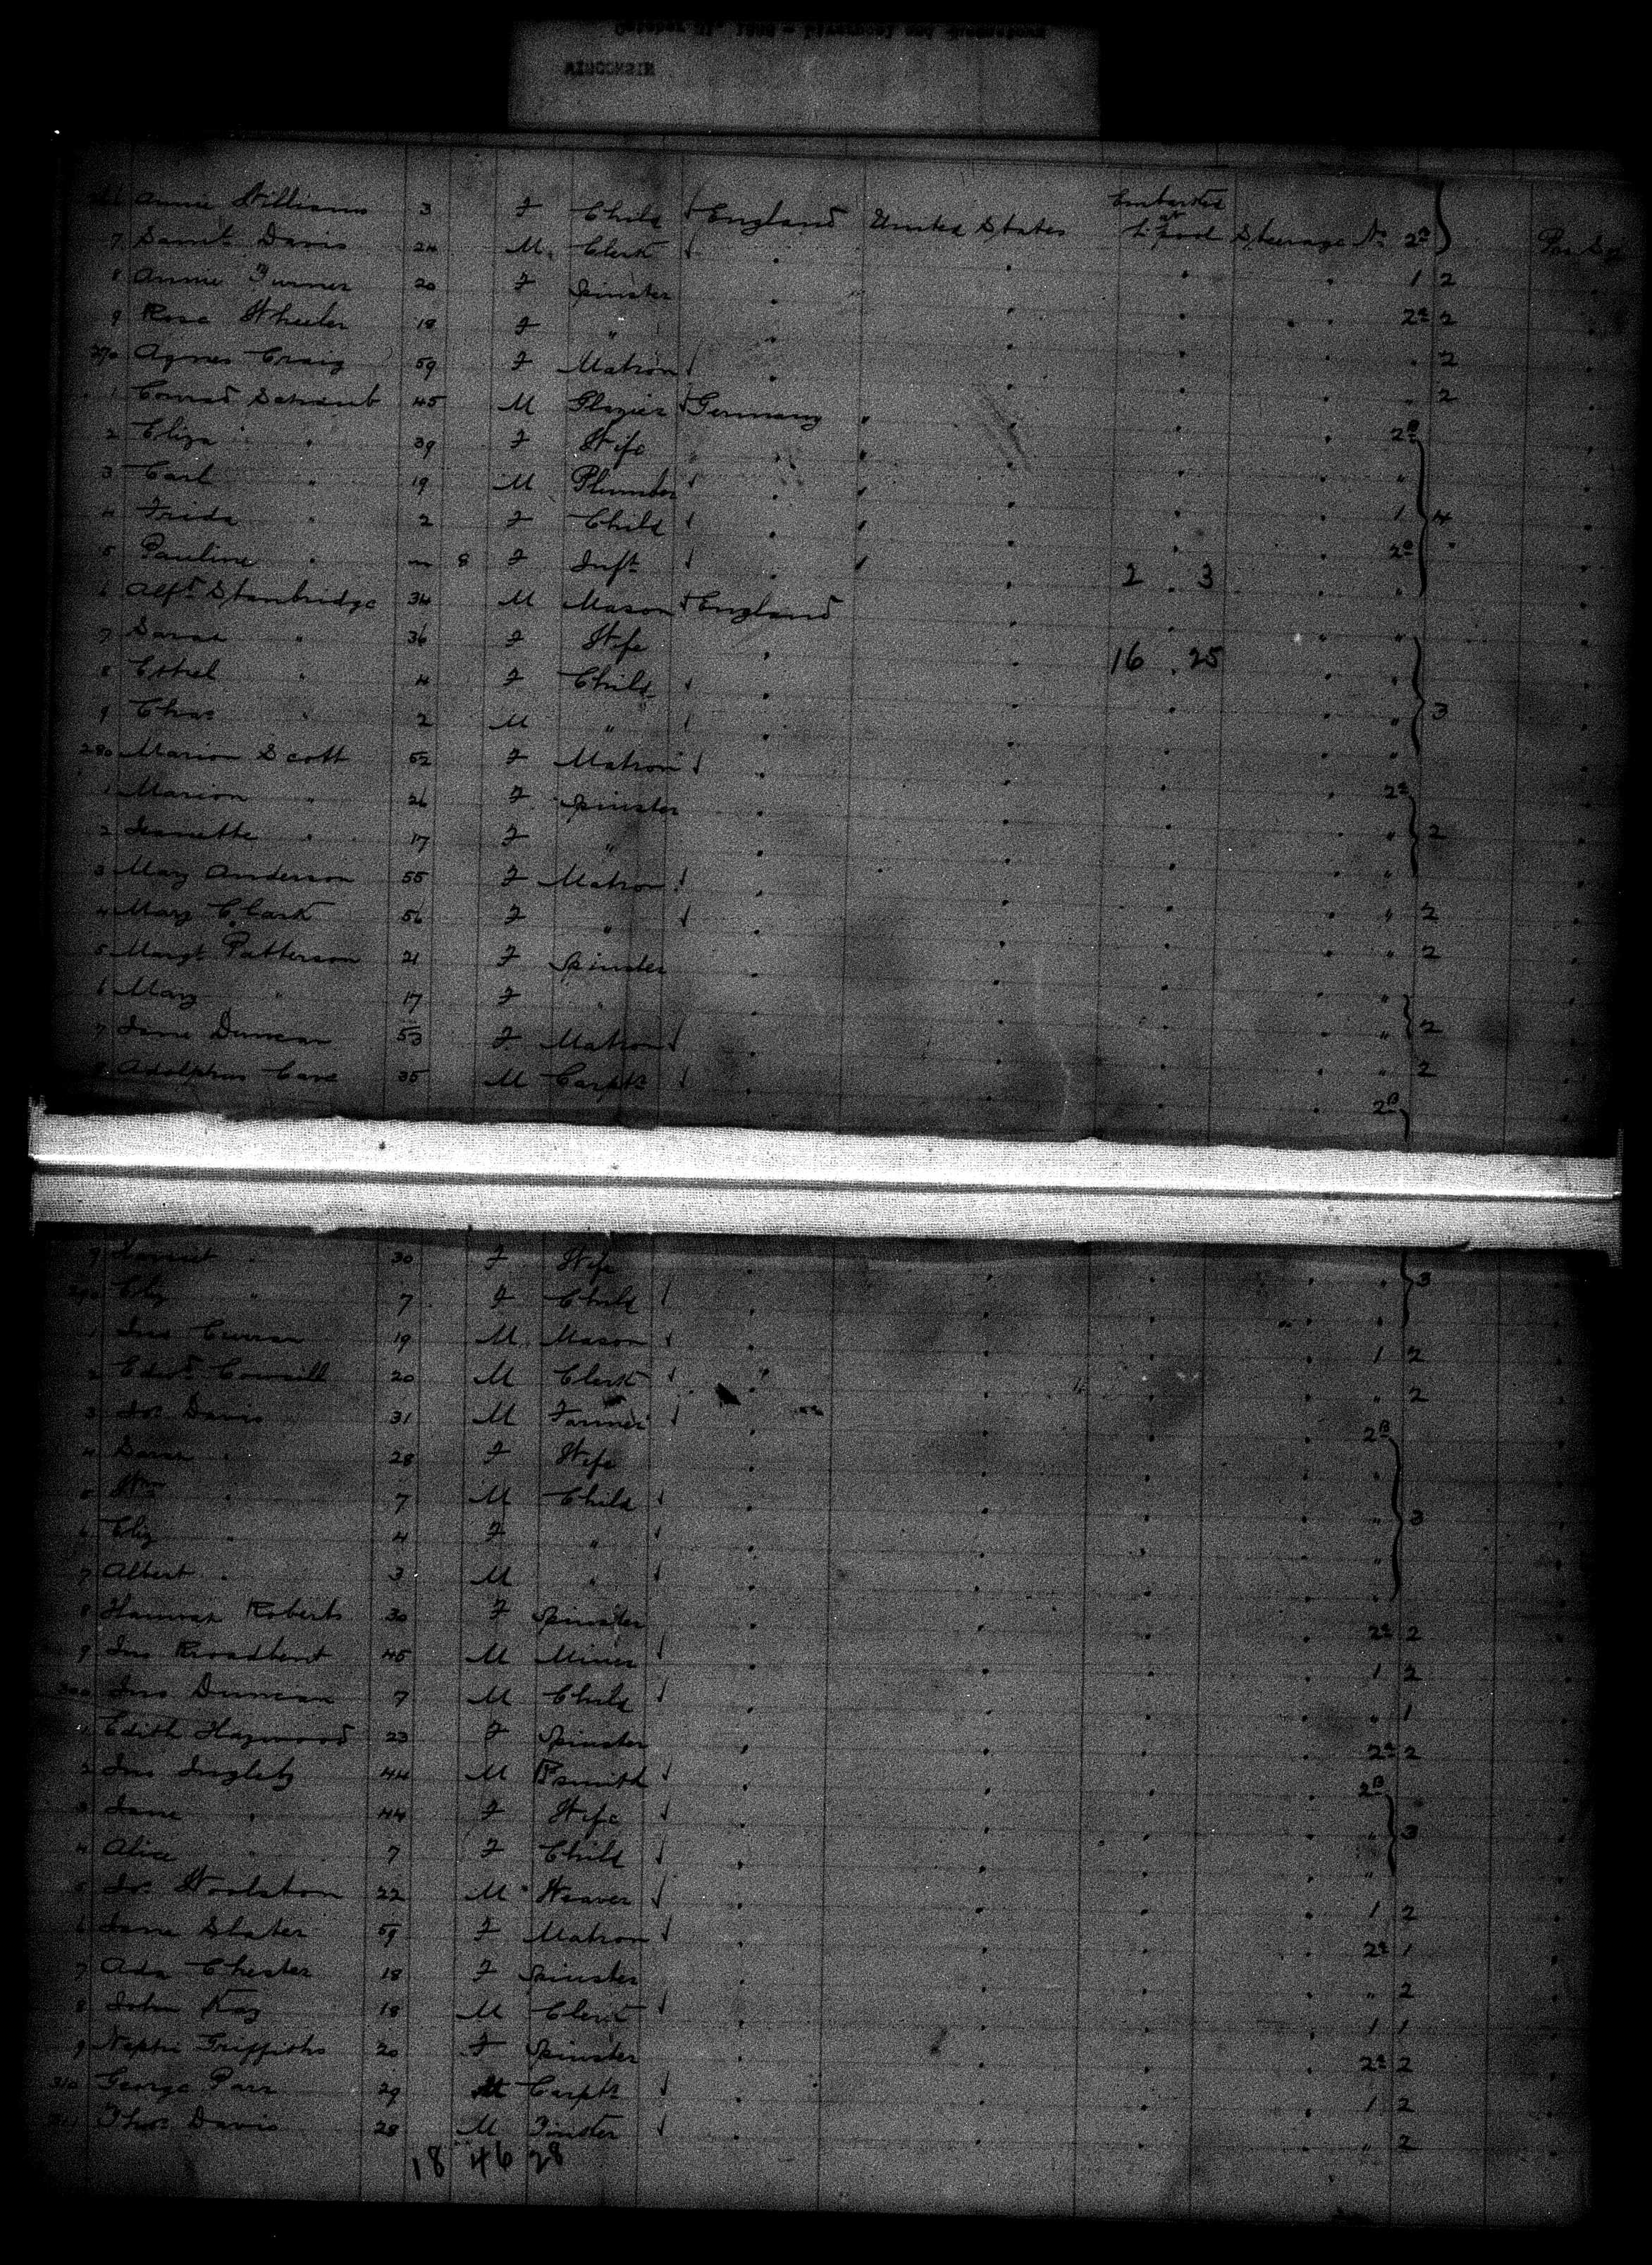 WISCONSIN
Embarked
Annie Williams 3 F Child England United States at L'pool Steerage No 2a
7 Saml. Davis 24 M Clerk " " " " 1 2
8 Annie Turner 20 F Spinster " " " " 2a 2
9 Rose Wheeler 18 F " " " " " " 2
270 Agnes Craig 59 F Matron " " " " " 2
1 Conrad Schaub 45 M Glazier Germany " " " 2B
2 Eliza " 39 F Wife " " " " "
3 Carl " 19 M Plumber " " " " 1 4
4 Frida " 2 F Child " " " " 2B
5 Pauline " 8 F Inft " " 2 . 3 "
6 Alfd Stanbridge 34 M Mason England " " " "
7 Sarah " 36 F Wife " " 16 . 25 "
8 Ethel " 4 F Child " " " " " 3
9 Chas " 2 M " " " " " "
280 Marion Scott 52 F Matron " " " " 2a
1 Marion " 26 F Spinster " " " " " 2
2 Jeanette " 17 F " " " " " "
3 Mary Anderson 55 F Matron " " " " " 2
4 Mary Clark 56 F " " " " " " 2
5 Margt Patterson 21 F Spinster " " " " "
6 Mary " 17 F " " " " " " 2
7 Jane Duncan 53 F Matron " " " " " 2
8 Adolphus Cave 35 M Carptr " " " " 2B
9 Harriet " 30 F Wife " " " " " 3
290 Eliz " 7 F Child " " " " "
1 Jno Curran 19 M Mason " " " " 1 2
2 Edwd 20 M Clerk " " " " " 2
3 Jos Davis 31 M Farmer " " " " 2B
4 Sarah " 28 F Wife " " " " "
5 Wm " 7 M Child " " " " " 3
6 Eliz " 4 F " " " " " "
7 Albert " 3 M " " " " " "
8 Hannah Roberts 30 F Spinster " " " " 2a 2
9 Jno Broadbent 45 M Miner " " " " 1 2
300 Jno Duncan 7 M Child " " " " " 1
1 Edith Haywood 23 F Spinster " " " " 2a 2
2 Jno Ingleby 44 M Bsmith " " " " 2B
3 Jane " 44 F Wife " " " " " 3
4 Alice " 7 F Child " " " " "
5 Jos Woolston 22 M Weaver " " " " 1 2
6 Jane Slater 59 F Matron " " " " 2a 1
7 Ada Chester 18 F Spinster " " " " " 2
8 John Kay 18 M Clerk " " " " 1 1
9 Nephi Griffiths 20 F Spinster " " " " 2a 2
310 George Parr 29 M Carptr " " " " 1 2
311 Thos Davis 28 M " " " " " 2
18 46 28